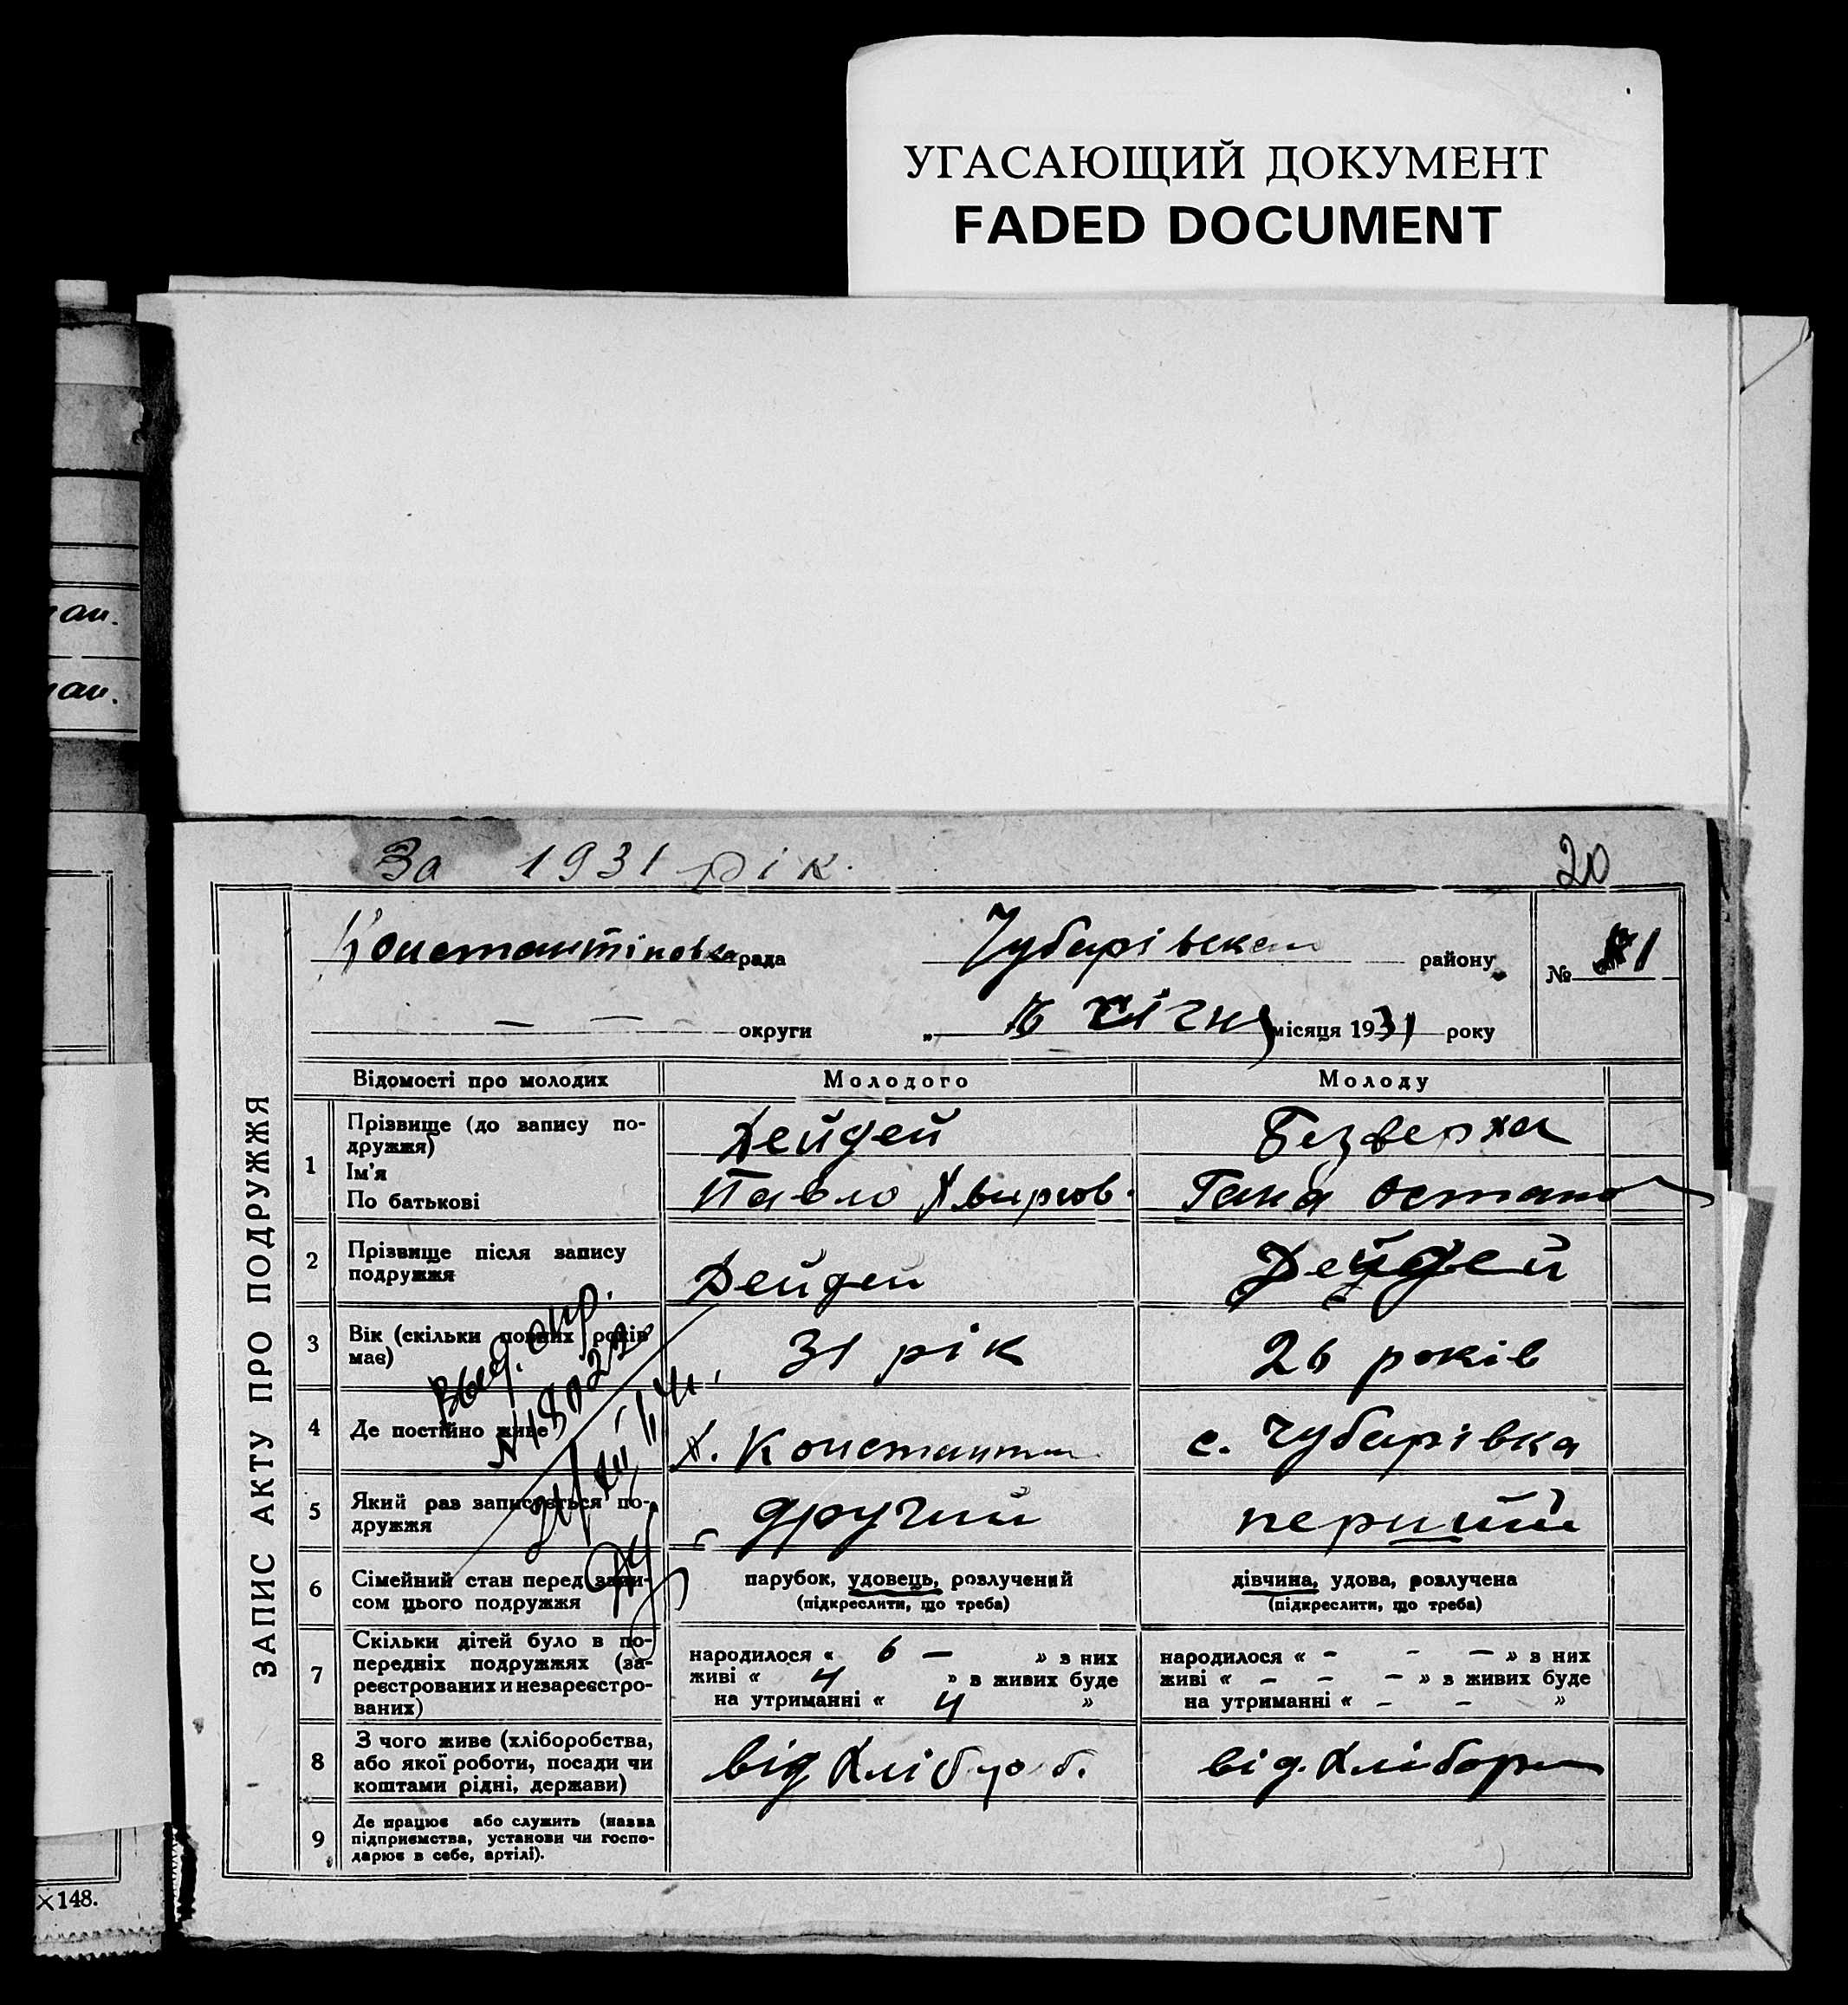 УГАСАЮЩИЙ ДОКУМЕНТ
FADED DOCUMENT
За 1931 рік.
20
Константіновка рада Чубарівскан району № 1
— — — округи „ січня місяця 1931 року
ЗАПИС АКТУ ПРО ПОДРУЖЖЯ
Відомості про молодих Молодого Молоду
1 Прізвище (до запису по-
дружжя) Дейдей Безверха
Ім'я
По батькові Павло Гана Остапо
2 Прізвище після запису
подружжя Дейдей Дейдей
3 Вік (скільки повних років
має) 31 рік 26 років
4 Де постійно живе х. Константин с. Чубарівка
5 Який раз записується по-
дружжя другий перший
6 Сімейний стан перед запи-
сом цього подружжя парубок, удовець, розлучений дівчина, удова, розлучена
(підкреслити, що треба) (підкреслити, що треба)
7 Скільки дітей було в по-
передніх подружжях (за-
реєстрованих и незареєстро-
ваних)
народилося « 6 — » з них народилося « - - — » з них
живі « 4 » в живих буде живі « - - — » в живих буде
на утриманні « 4 » на утриманні « - - »
8 З чого живе (хліборобства,
або якої роботи, посади чи
коштами рідні, держави) від Хлібороб. від. Хлібороб
9 Де працює або служить (назва
підприємства, установи чи госпо-
дарює в себе, артілі).
×148.